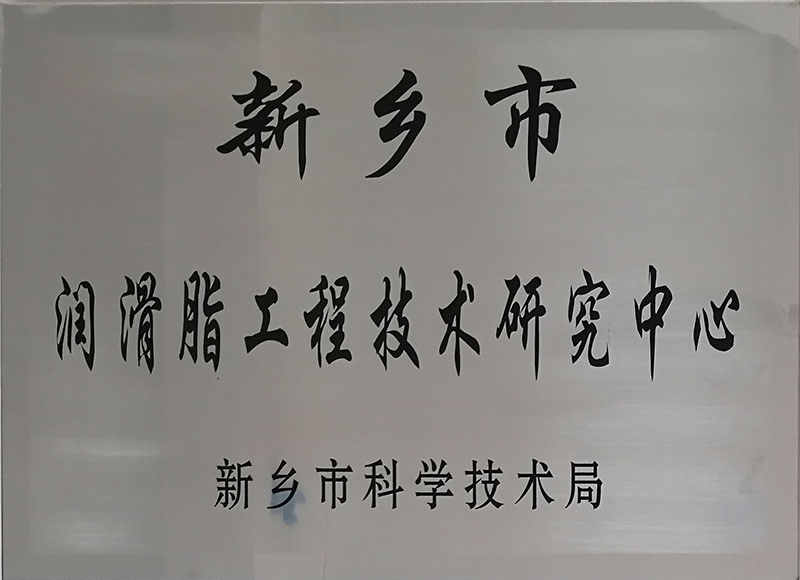 新乡市
润滑脂工程技术研究中心
新乡市科学技术局